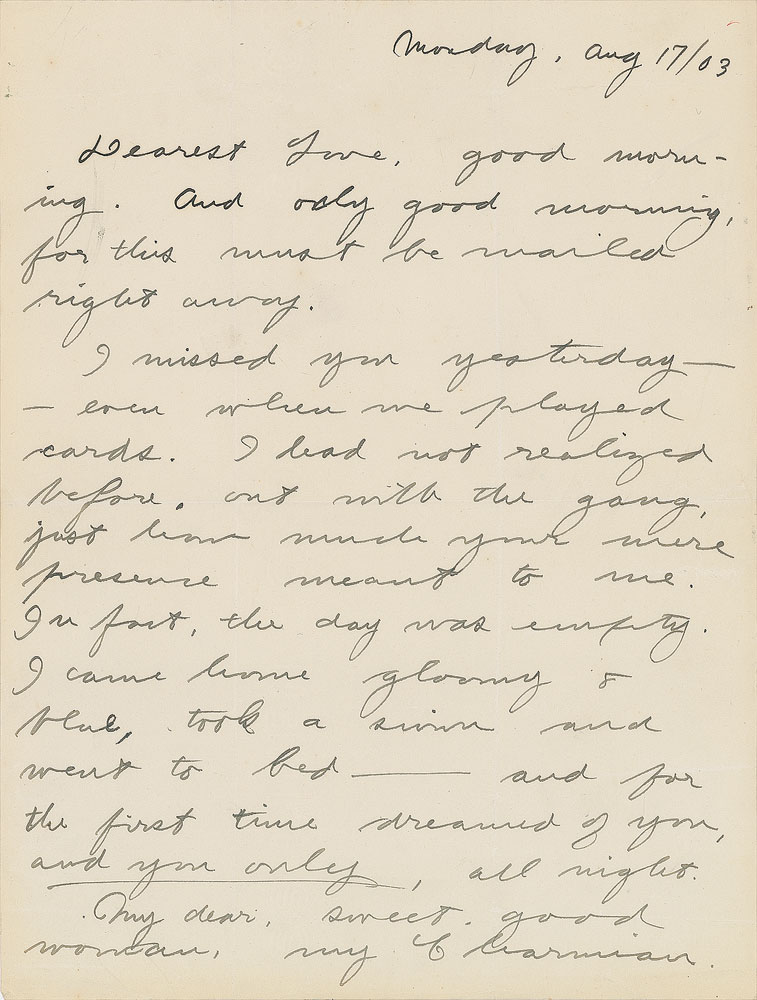 Monday, Aug 17/03
Dearest Love, good morn-
ing. And only good morning,
for this must be mailed
right away.
I missed you yesterday—
— even when we played
cards. I had not realized
before, out with the gang,
just how much your mere
presence meant to me.
In fact, the day was empty.
I came home gloomy &
blue, took a swim and
went to bed —— and for
the first time dreamed of you,
and you only, all night.
My dear, sweet, good
woman, my Charmian.